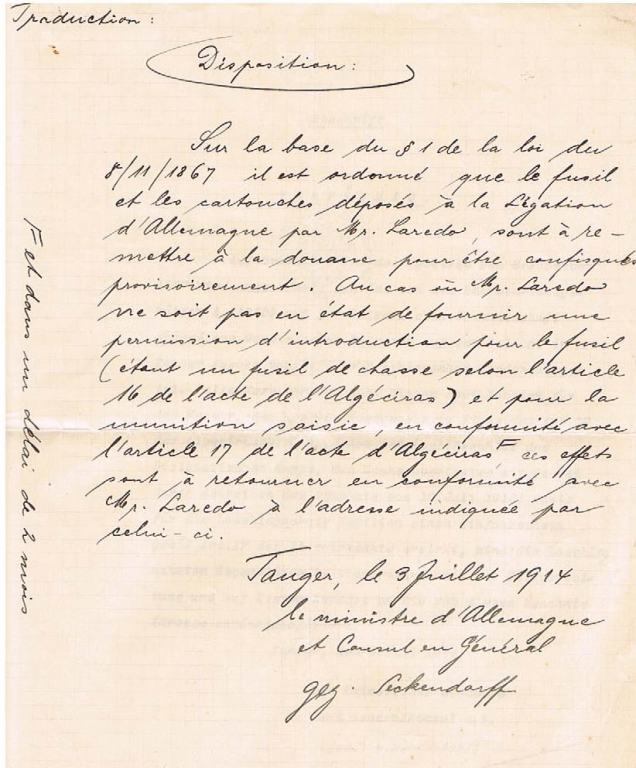 Traduction :
Disposition :
Sur la base du § 1 de la loi du
8/11/1867 il est ordonné que le fusil
et les cartouches déposés à la Légation
d'Allemagne par Mr. Laredo, sont à re-
mettre à la douane pour être confisqués
provisoirement. Au cas où Mr. Laredo
ne soit pas en état de fournir une
permission d'introduction pour le fusil
(étant un fusil de chasse selon l'article
16 de l'acte de l'Algéciras) et pour la
munition saisie, en conformité avec
l'article 17 de l'acte d'Algéciras F ces effets
sont à retourner en conformité avec
Mr. Laredo à l'adresse indiquée par
celui-ci.
Tanger, le 3 Juillet 1914
le ministre d'Allemagne
et Consul en Général
gez. Seckendorff
F et dans un délai de 2 mois